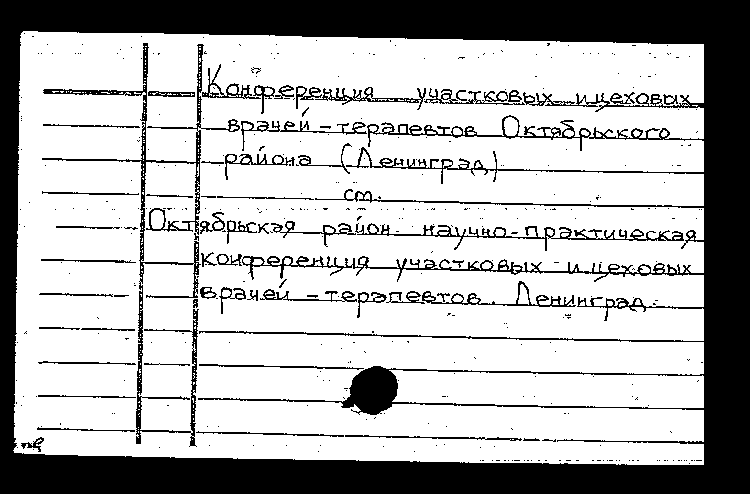 Конференция участковых и цеховых
врачей-терапевтов Октябрьского
района (Ленинград)
см.
Октябрьская район. научно-практическая
конференция участковых и цеховых
врачей-терапевтов. Ленинград.